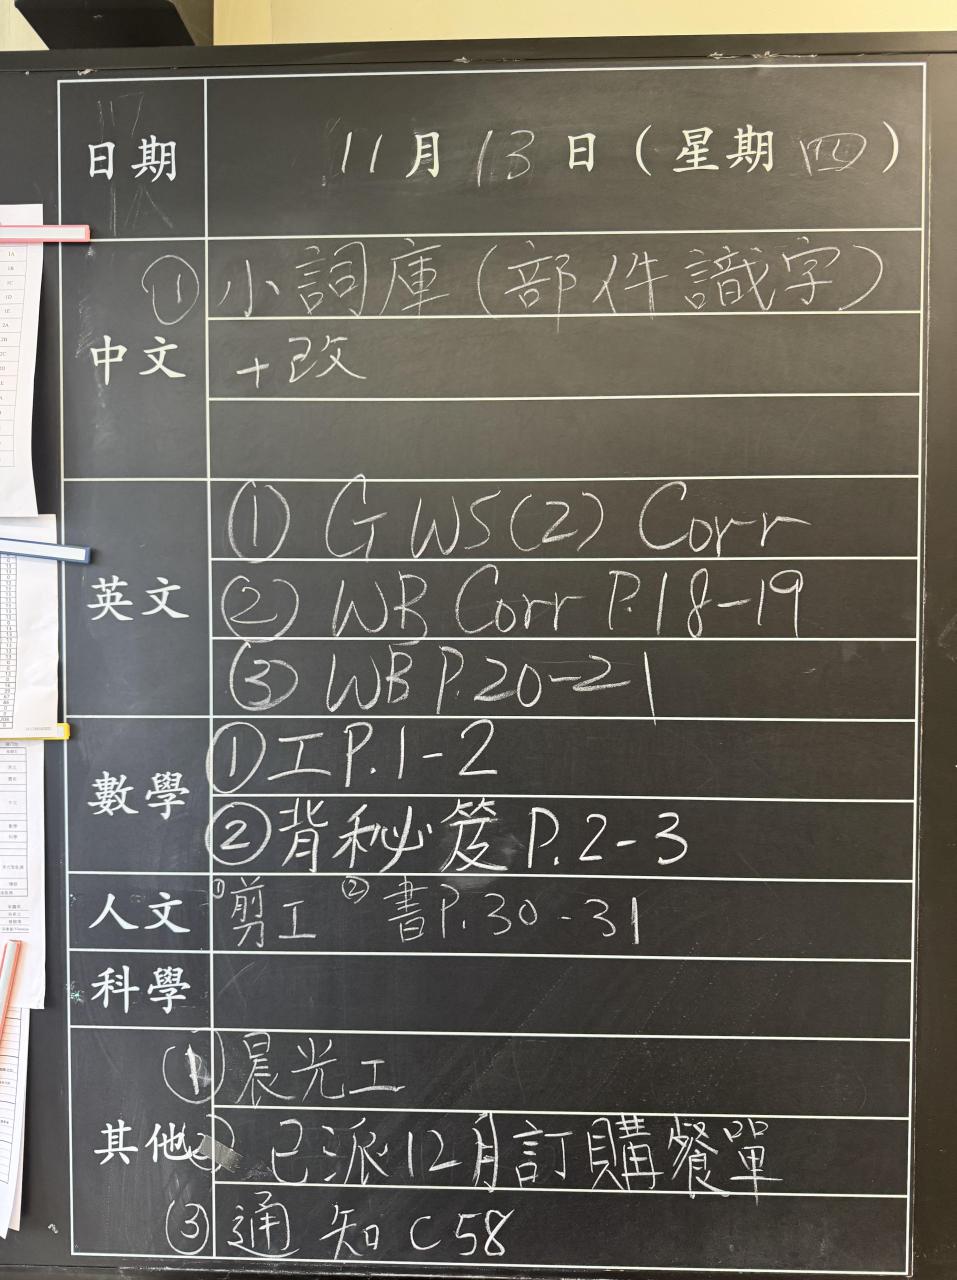 日期 11月13日(星期四)
中文
① 小詞庫(部件識字)
+改
英文
① G WS(2) Corr
② WB Corr P.18-19
③ WB P.20-21
數學
① 工P.1-2
② 背秘笈P.2-3
人文 ①剪工 ②書P.30-31
科學
其他
① 晨光工
② 已派12月訂購餐單
③ 通知C58